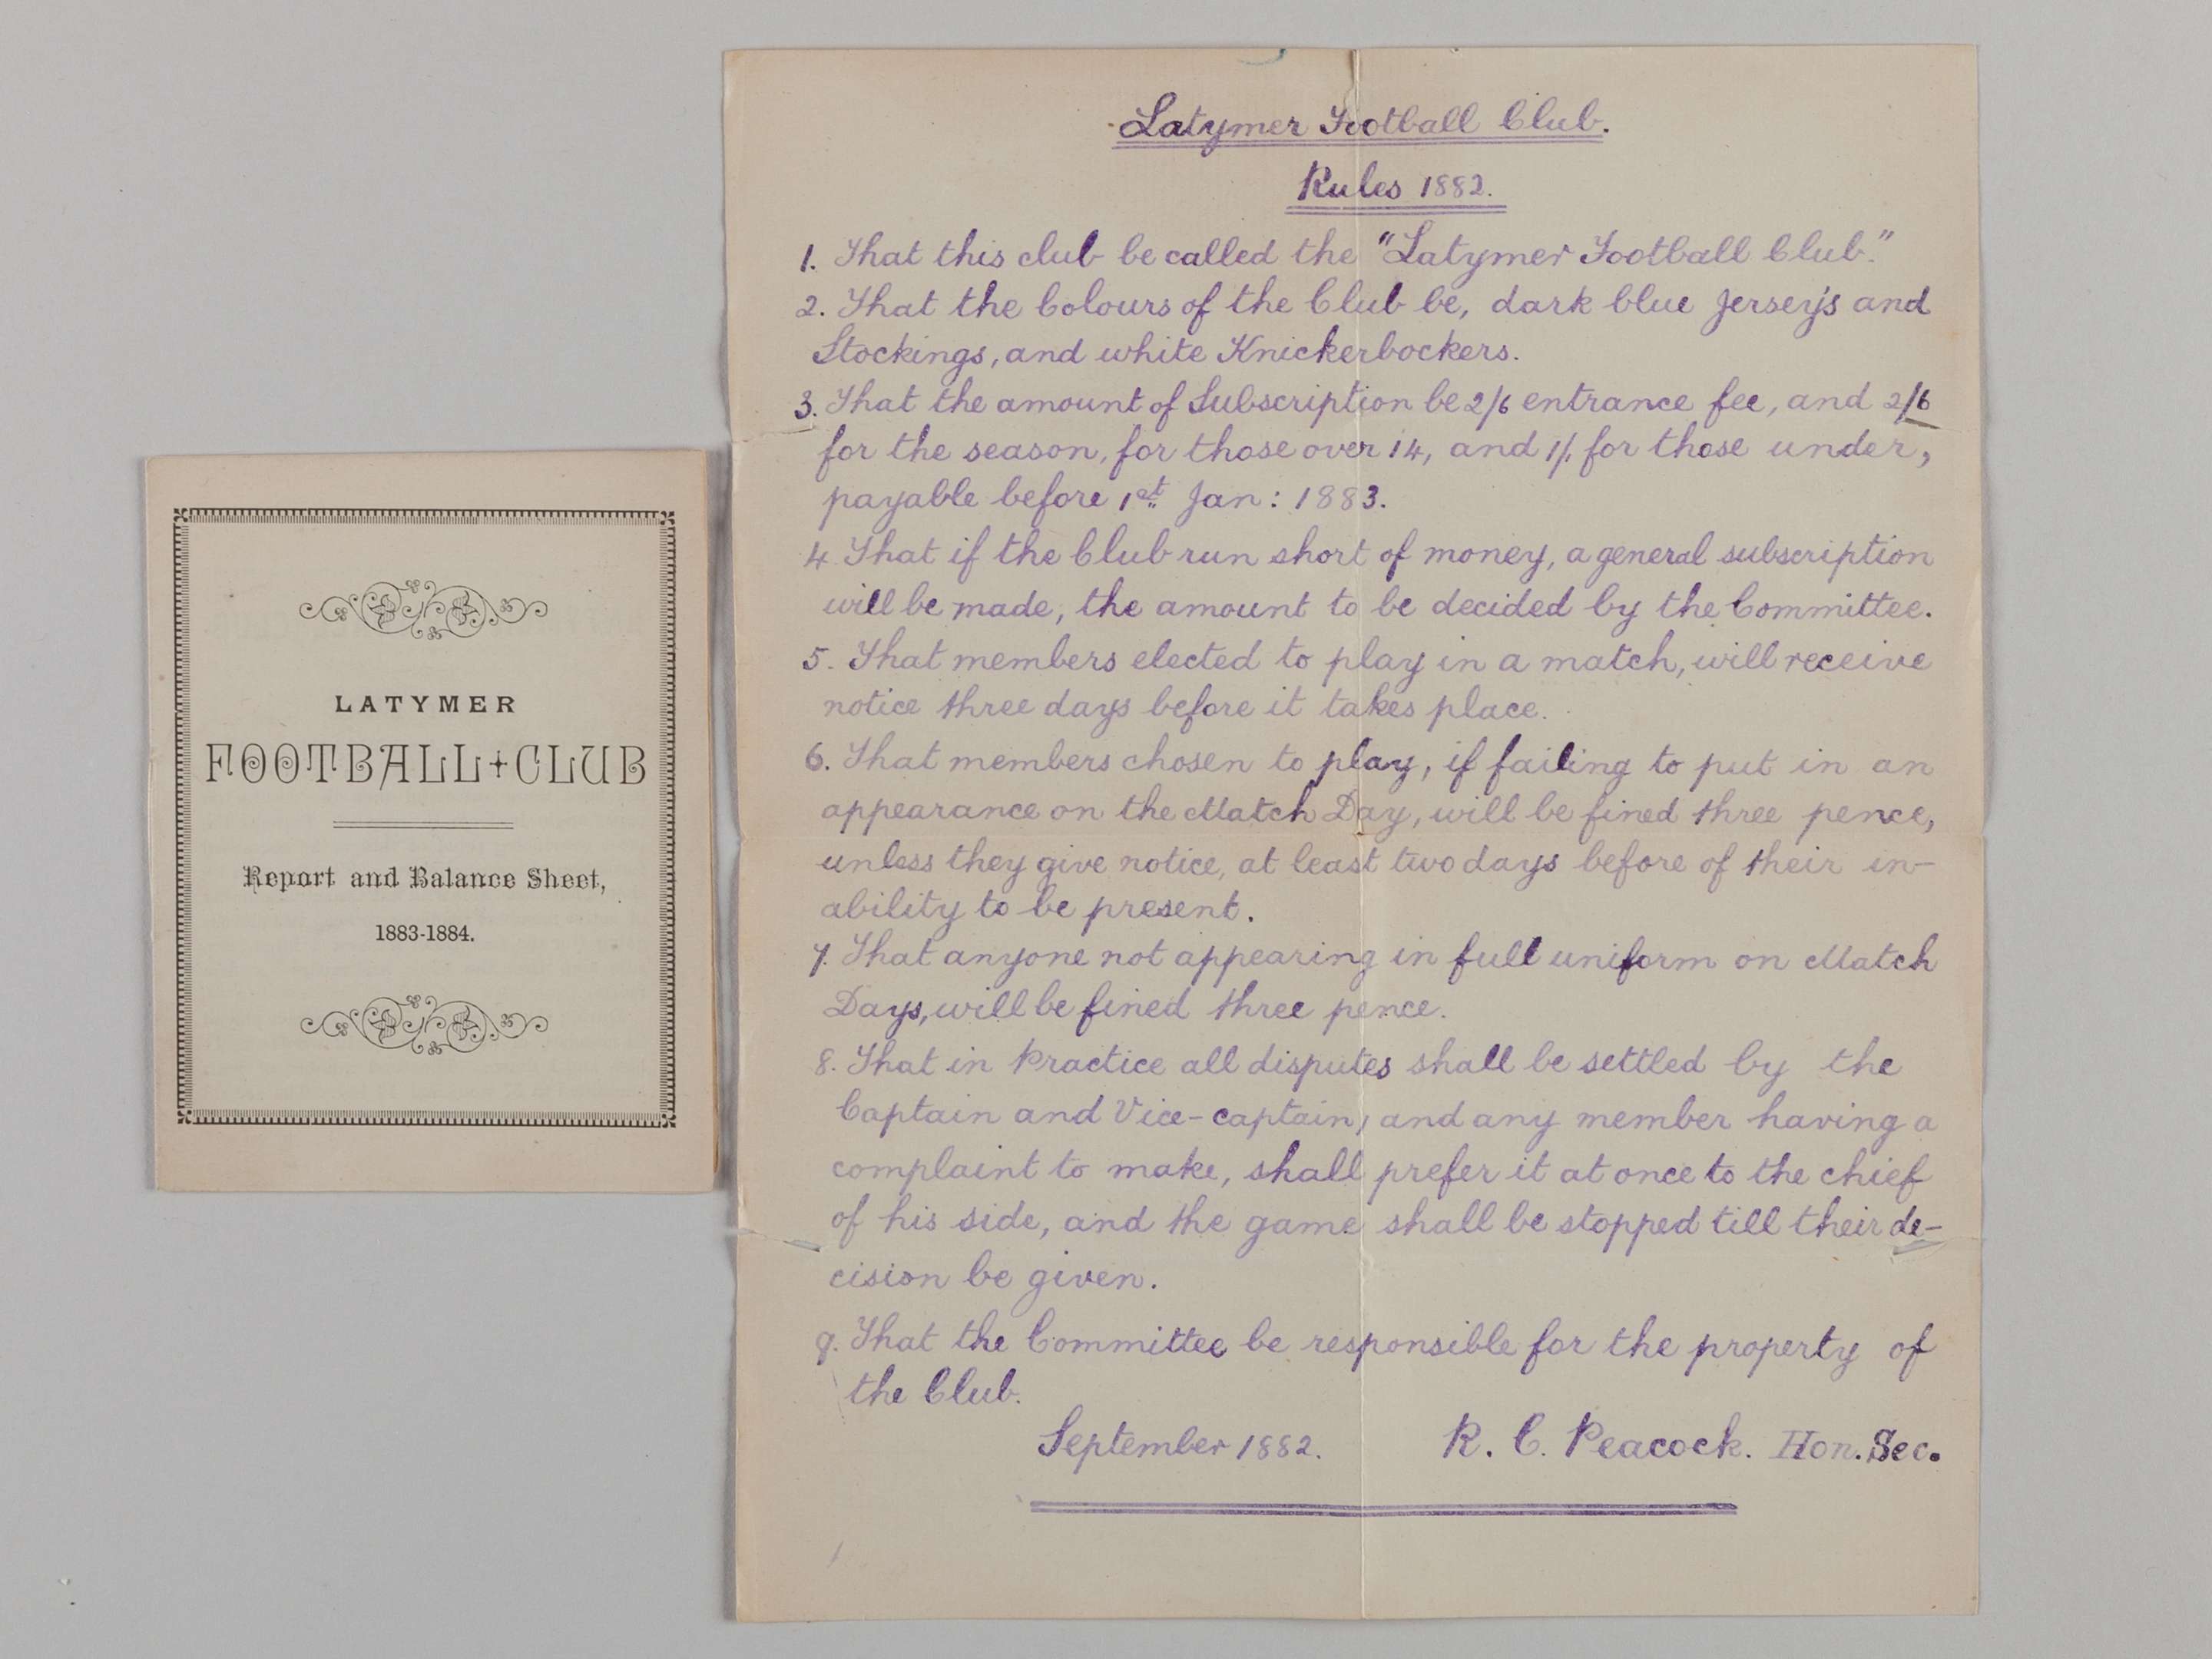 LATYMER
FOOTBALL+CLUB
Report and Balance Sheet,
1883-1884.
Latymer Football Club.
Rules 1882.
1. That this club be called the "Latymer Football Club."
2. That the Colours of the Club be, dark blue Jerseys and
Stockings, and white Knickerbockers.
3. That the amount of Subscription be 2/6 entrance fee, and 2/6
for the season, for those over 14, and 1/. for those under,
payable before 1st Jan: 1883.
4 That if the Club run short of money, a general subscription
will be made, the amount to be decided by the Committee.
5. That members elected to play in a match, will receive
notice three days before it takes place.
6. That members chosen to play, if failing to put in an
appearance on the Match Day, will be fined three pence,
unless they give notice, at least two days before of their in-
ability to be present.
7. That anyone not appearing in full uniform on Match
Days, will be fined three pence.
8. That in Practice all disputes shall be settled by the
Captain and Vice-captain, and any member having a
complaint to make, shall prefer it at once to the chief
of his side, and the game shall be stopped till their de-
cision be given.
9. That the Committee be responsible for the property of
the Club.
September 1882. R. C. Peacock. Hon. Sec.